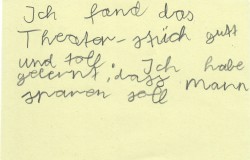 Ich fand das
Theater-stück gutt
und toll. Ich habe
gelernt, dass Mann
sparen soll